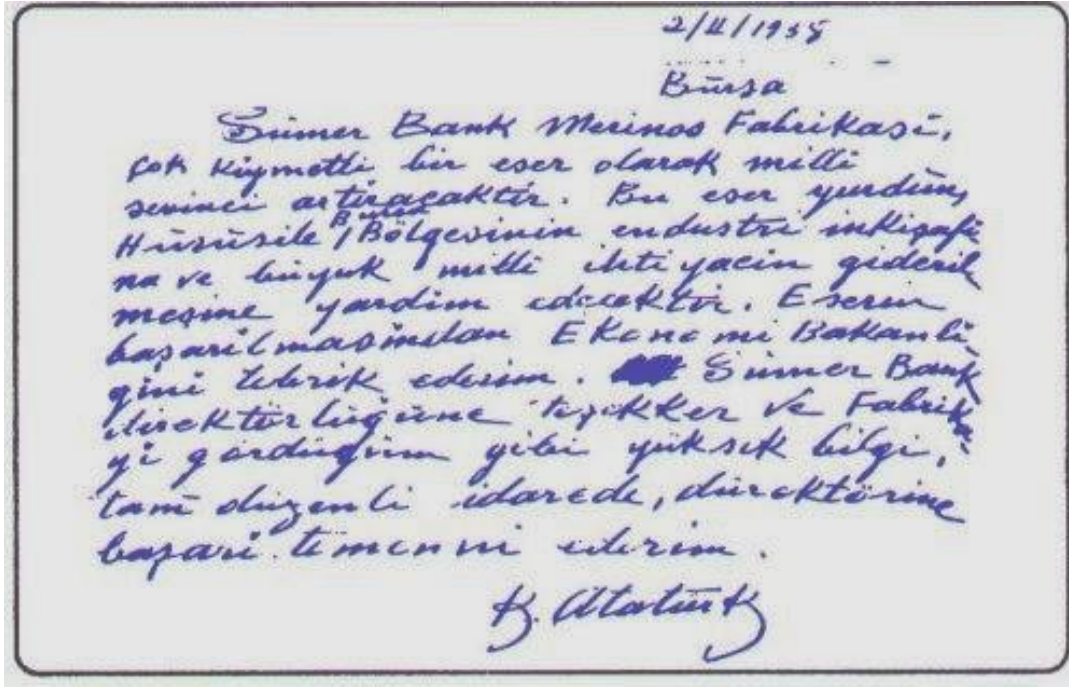 2/II/1938
Bursa
Sümer Bank Merinos Fabrikasi,
çok kiymetli bir eser olarak milli
sevinci artiracaktir. Bu eser yurdun,
Hüsusile Bursa Bölgesinin endustri inkişafi
na ve büyuk milli ihtiyacin gideril
mesine yardim edecektir. Eserin
başarilmasindan Ekonomi Bakanli
ğini tebrik ederim. Sümer Bank
direktörlüğüne teşekker ve Fabrika
yi gördüğüm gibi yüksek bilgi,
tam düzenli idarede, direktörine
başari temenni ederim.
K. Atatürk